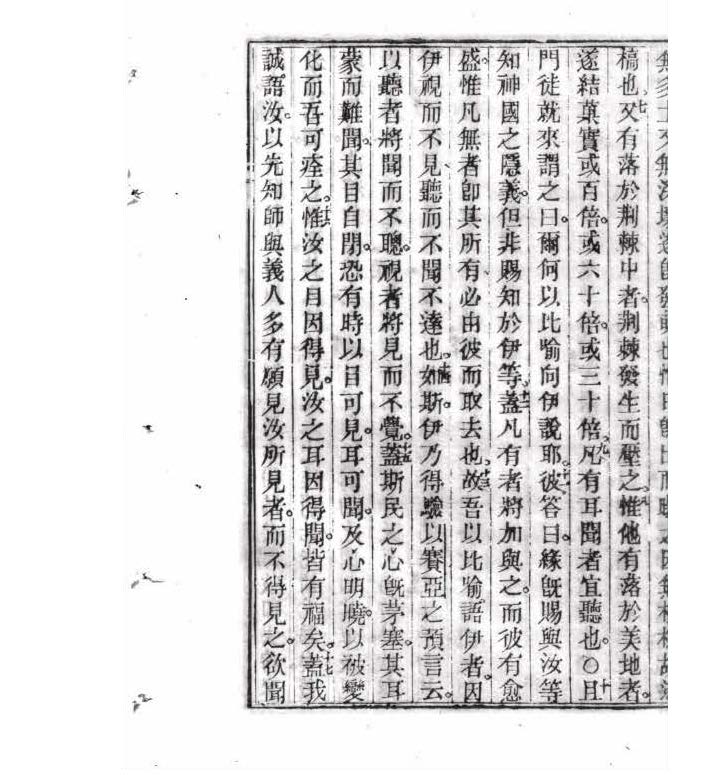 槁也、七又有落於荆棘中者。荆棘發生而壓之。八惟他有落於美地者。
遂結菓實或百倍。或六十倍。或三十倍。九凡有耳聞者宜聽也。〇十且
門徒就來謂之曰。爾何以比喻向伊說耶。十一彼答曰。緣旣賜與汝等
知神國之隱義。但非賜知於伊等。十二蓋凡有者將加與之。而彼有愈
盛。惟凡無者卽其所有、必由彼而取去也。十三故吾以比喻語伊者。因
伊視而不見、聽而不聞不達也。十四如斯。伊乃得驗以賽亞之預言云。
以聽者將聞而不聰。視者將見而不覺。十五蓋斯民之心旣茅塞。其耳
蒙而難聞。其目自閉。恐有時以目可見。耳可聞。及心明曉。以被變
化而吾可痊之。十六惟汝之目因得見。汝之耳因得聞。皆有福矣。十七蓋我
誠語汝。以先知師與義人多有願見汝所見者。而不得見之。欲聞